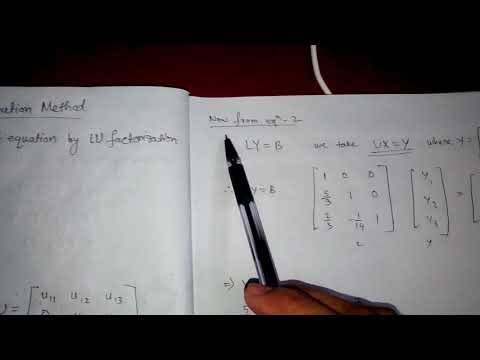 Method
equation by LU factorization
U = [ u11 u12 u13
Now from eqn-2
LY = B we take UX=Y where Y = [
∴ Y = B [ 1 0 0 [ y1
5/3 1 0 y2 = [
2/3 -1/14 1 ] y3 ]
L y
⇒